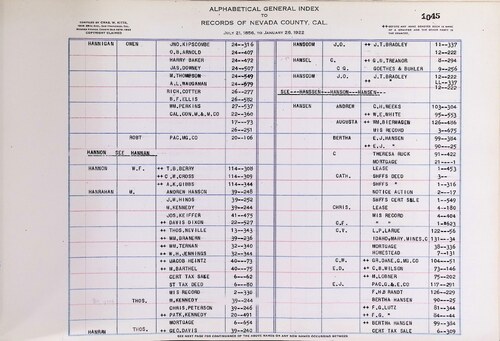 ALPHABETICAL GENERAL INDEX
TO
RECORDS OF NEVADA COUNTY, CAL.
JULY 21, 1856, TO JANUARY 28, 1922
COPYRIGHT CLAIMED
1045
HANNIGAN OWEN JNO. KIPSCOMBE 24--316
O.R. ARNOLD 24--407
HARRY BAKER 24--472
JAS. DOWNEY 24--597
W. THOMPSON 24--549
A.L. MAUGAMAN 24--579
RICH. COTTER 26--277
W.F. ELLIS 26--582
WM. PERKINS 27--537
CAL. CON. M. & W. CO 22--360
17--73
26--251
ROBT PAC. MG. CO 20--106
HANNON SEE HANNAN
HANNON W.F. ++ T.B. BERRY 114--308
++ E.M. CROSS 114--309
++ A.K. GIBBS 114--344
HANRAHAN M. ANDREW HANSEN 39--248
J.M. HINDS 39--252
M. KENNEDY 39--244
JOS. KEIFFER 41--475
++ DAVIS DIXON 22--527
++ THOS. NEVILLE 13--343
++ WM. BRANERN 39--236
++ WM. TERNAN 32--340
++ W.H. JENNINGS 32--344
++ JACOB HEINTZ 40--73
++ M. BARTHEL 40--75
CERT TAX SALE 6--62
ST TAX DEED 6--80
MIS RECORD 2--338
THOS. M. KENNEDY 39--244
CHRIS. PETERSON 39--246
++ PATK. KENNEDY 20--491
MORTGAGE 6--654
HANRAHAN THOS. ++ GEO. DAVIS 39--242
HANSCOM J.O. ++ J.T. BRADLEY 11--337
12--222
HANSEL C. ++ G.R. TREANOR 8--294
C G. GOETHES & BUHLER 9--256
HANSCOM J.O. ++ J.T. BRADLEY 12--222
++ " 11--337
12--222
SEE---HANSSEN---HANSON---HANSEN---
HANSEN ANDREW C.H. MEEKS 103--304
++ W.E. WHITE 95--553
AUGUSTA ++ WM. BIERHAGEN 126--486
MIS RECORD 3--675
BERTHA E.J. HANSEN 99--384
++ E.J. " 90--25
C THERESA RUCK 11--422
MORTGAGE 21----1
LEASE 1--453
CATH. SHFFS DEED 3--
SHFFS " 1--316
NOTICE ACTION 2--17
SHFFS CERT SALE 1--549
CHRIS. LEASE 4--180
MIS RECORD 4--404
C.F. ++ " 1--623
C.V. L.P. LARUE 122--56
IDAHO & MARY. MINES. C 131--34
MORTGAGE 138--336
HOMESTEAD 7--131
C.W. ++ GR. DAKE. G. MG. CO 104--51
E.D. ++ C.B. WILSON 73--146
++ M. LOBNER 75--202
E.J. PAC. G. & E. CO 117--291
F.H.D RANDT 126--229
BERTHA HANSEN 90--25
++ F.G. LUTZ 81--344
++ F.G. " 84--44
++ BERTHA HANSEN 99--384
CERT TAX SALE 6--309
SEE NEXT PAGE FOR CONTINUANCE OF THE ABOVE NAMES OR ANY NEW NAMES OCCURRING BETWEEN